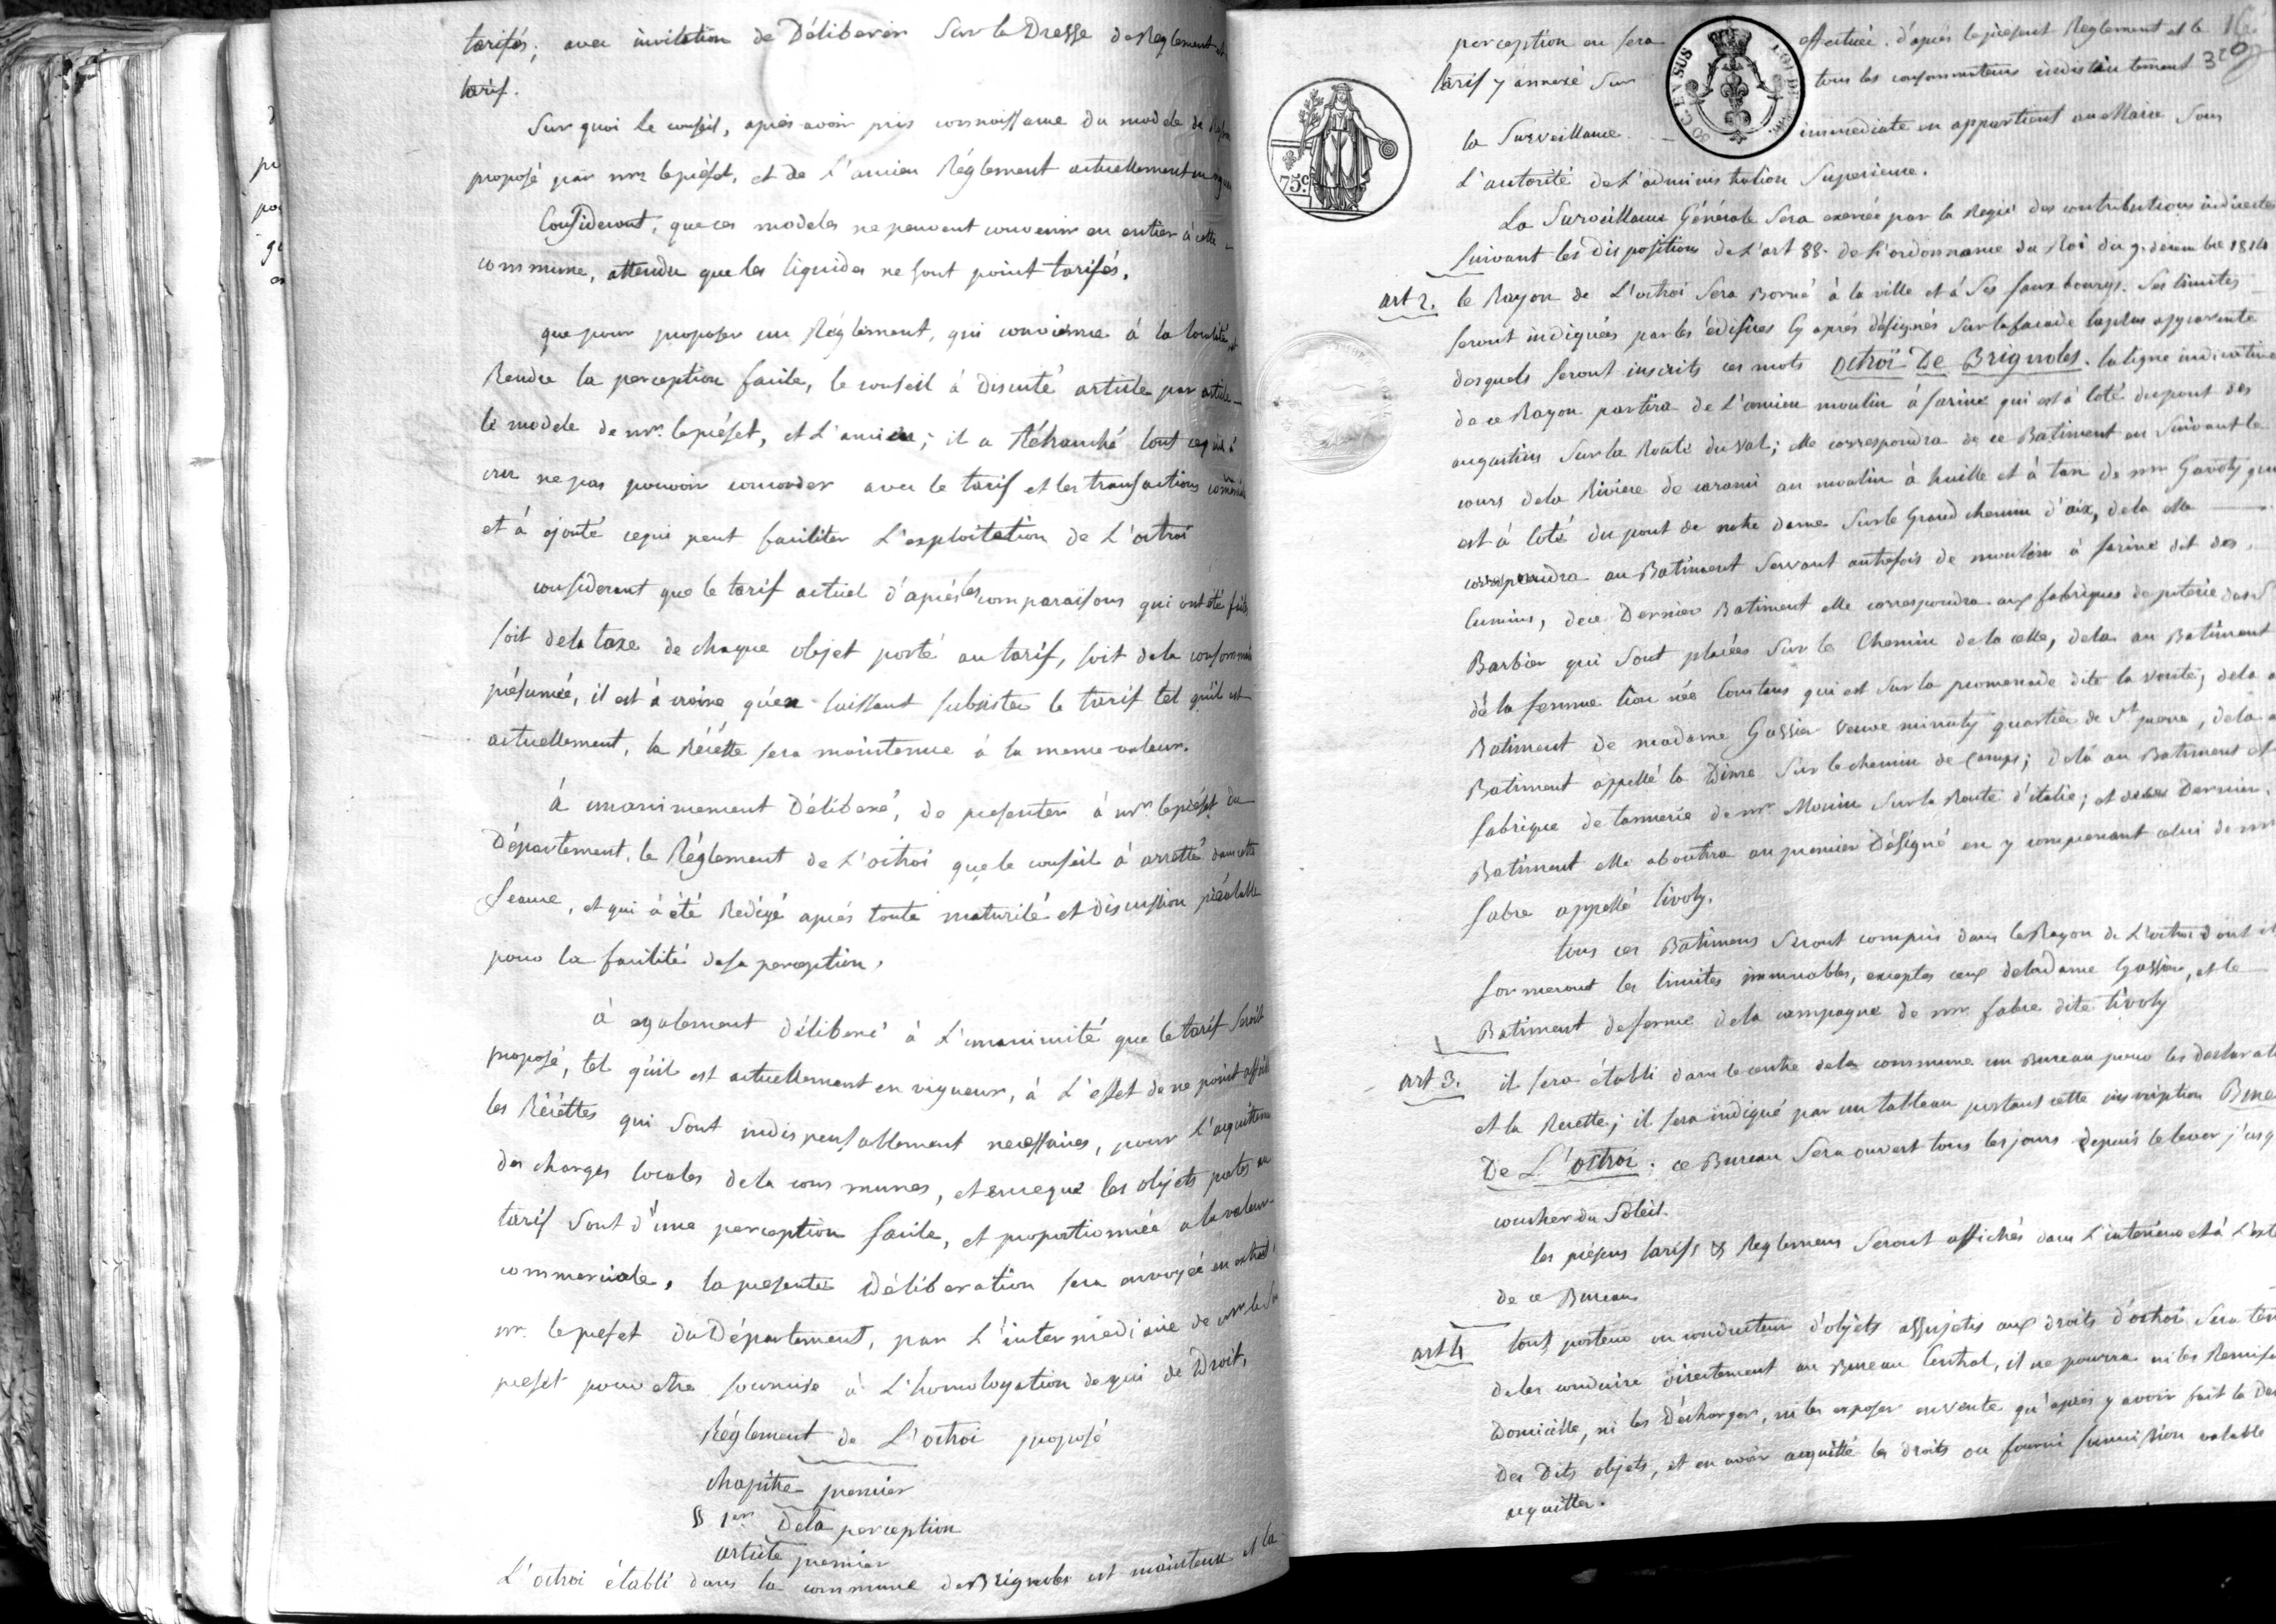 tarifés; avec invitation de Délibérer Sur la Dresse de Reglement et
tarif.
Sur quoi Le conseil, après avoir pris connoissance du modele de
proposé par mr. le préfet, et de L'ancien Réglement actuellement en
Considerant, que ces modeles ne peuvent convenir en entier à cette
commune, attendu que les liquides ne sont point tarifés.
que pour proposer un Réglement, qui convienne à la localité, et
Rendre la perception facile, le conseil à discuté article par article
le modele de mr. le préfet, et L'ancien; il a Rétranché tout ce qu'il à
cru ne pas pouvoir concorder avec le tarif et les transactions
et à ajouté ce qui peut faciliter L'exploitation de L'octroi
considerant que le tarif actuel d'après les comparaisons qui ont été faites
soit de la taxe de chaque objet porté au tarif, soit de la
présumée, il est à croire qu'en laissant subsister le tarif tel qu'il est
actuellement, la Récétte sera maintenue à la meme valeur.
à unanimement Délibéré, de presenter à mr. le préfet du
Département, le Réglement de L'octroi que le conseil à arretté dans cette
Seance, et qui à été Redigé après toute maturité et discussion préalable
pour la facilité de sa perception,
à egalement délibéré à L'unanimité que le tarif seroit
proposé, tel qu'il est actuellement en vigueur, à L'effet de ne point
les Récéttes qui Sont indispensablement necessaires, pour L'
des charges locales de la communes, et que les objets portés au
tarif Sont d'une perception facile, et proportionnée a la valeur
commerciale, la presente Délibération sera envoyée en extrait
mr. le prefet du Département, par L'intermédiaire de mr le
prefet pour etre soumise à L'homologation de qui de Droit,
Réglement de L'octroi proposé
chapitre premier
§ 1er De la perception
article premier
L'octroi établi dans la commune de Brignoles est maintenu et la
perception en sera effectuée d'après le présent Reglement et le
320
tarif y annexé Sur tous les consommateurs indistinctement
la Surveillance immédiate en appartient au Maire Sous
L'autorité de L'administration Superieure.
75c.
La Surveillance Générale Sera exercée par la Regie des contributions indirectes
Suivant les dispositions de L'art 88. de L'ordonnance du Roi du 9. decembre 1814
art 2. le Rayon de L'octroi Sera Borné à la ville et à Ses fauxbourgs. Ses limites
seront indiquées par les édifices cy après désignés sur la facade la plus apparente
desquels seront inscrits ces mots octroi De Brignoles. la ligne indicative
de ce Rayon partira de L'ancien moulin à farine qui est à Coté du pont des
augustins Sur la Route du Val; elle correspondra de ce Batiment en Suivant le
cours de la Riviere de carami au moulin à huille et à tan de mr Gavoty qui
est à Coté du pont de notre dame Sur le Grand chemin d'aix, de la elle
correspondra au Batiment Servant autrefois de moulin à farine dit des
Cumins, de ce Dernier Batiment elle correspondra aux fabriques de poterie des
Barbier qui Sont placées Sur le Chemin de la celle, de la au Batiment
de la femme née Coustans qui est Sur la promenade dite la ; de la
Batiment de madame Gassier veuve minuty quartier de St pierre, de la
Batiment appellé la Dime Sur le chemin de Camps; de là au Batiment et
fabrique de tannerie de mr. Monin Sur la Route d'italie; et de Dernier
Batiment elle aboutira au premier Désigné en y comprenant celui de mr
fabre appellé tivoly.
tous ces Batimens Seront compris dans le Rayon de L'octroi dont il
formeront les limites immuables, exceptés ceux de la dame Gassier, et le
Batiment de ferme de la campagne de mr. fabre dite tivoly
art 3. il sera établi dans le centre de la commune un Bureau pour les
et la Recette; il sera indiqué par un tableau portant cette inscription
De L'octroi; ce Bureau Sera ouvert tous les jours depuis le lever
coucher du Soleil.
les présens tarifs et Reglemens Seront affichés dans L'interieur et à
de ce Bureau
art 4 tout porteur ou conducteur d'objets assujetis aux droits d'octroi Sera
de les conduire directement au Bureau Central, il ne pourra ni les
Domicille, ni les Décharger, ni les exposer en vente qu'après y avoir fait la
Des Dits objets, et en avoir acquitté les droits ou fourni Soumission valable
acquitter.